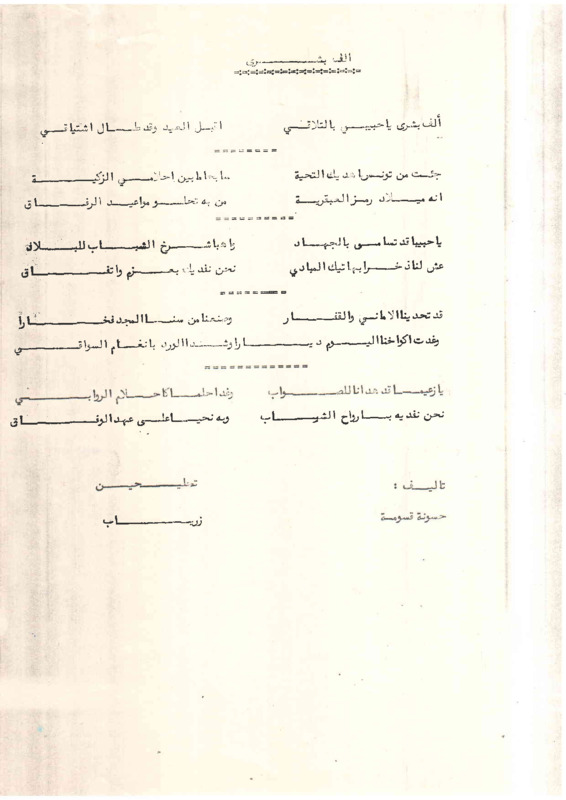 الف بشرى
ألف بشرى يا حبيبي بالتلاقي اقبل العيد وقد طال اشتياقي
جئت من تونس اهديك التحية ما بين احلامي الزكية
انه ميلاد رمز العبقرية من به تحلو مواعيد الرفاق
يا حبيبا قد تسامى بالجهاد شرخ الشباب للبلاد
عش لنا ذخرا بهاتيك المبادي نحن نفديك بعزم واتفاق
قد تحدينا الاماني والقفار وصنعنا من سنا المجد فخارا
وغدت اكواخنا اليوم ديارا وشدا الورد بانغام السواقي
يا زعيما قد هدانا للصواب وغدا حلما كاحلام الروابي
نحن نفديه بارواح الشباب وبه نحيا على عهد الوفاق
تاليف : تلحين
حسونة قسومة زرياب